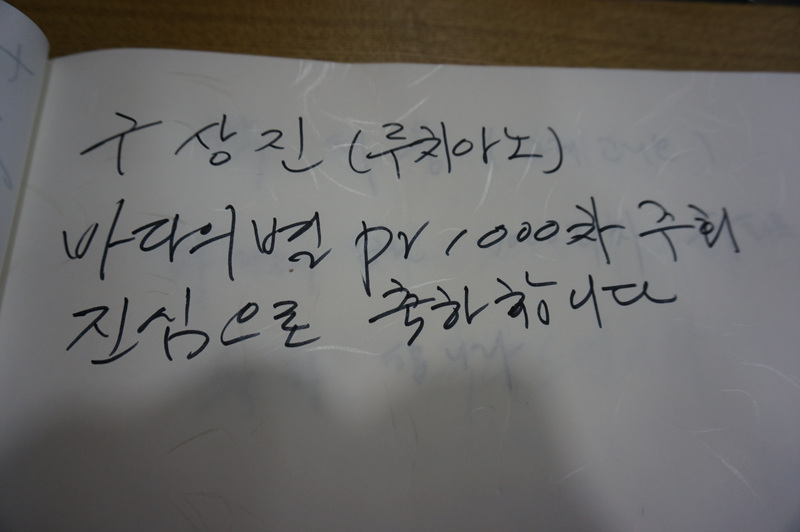 구상진 (루치아노)
바다의 별 pr 1000차 주회
진심으로 축하합니다